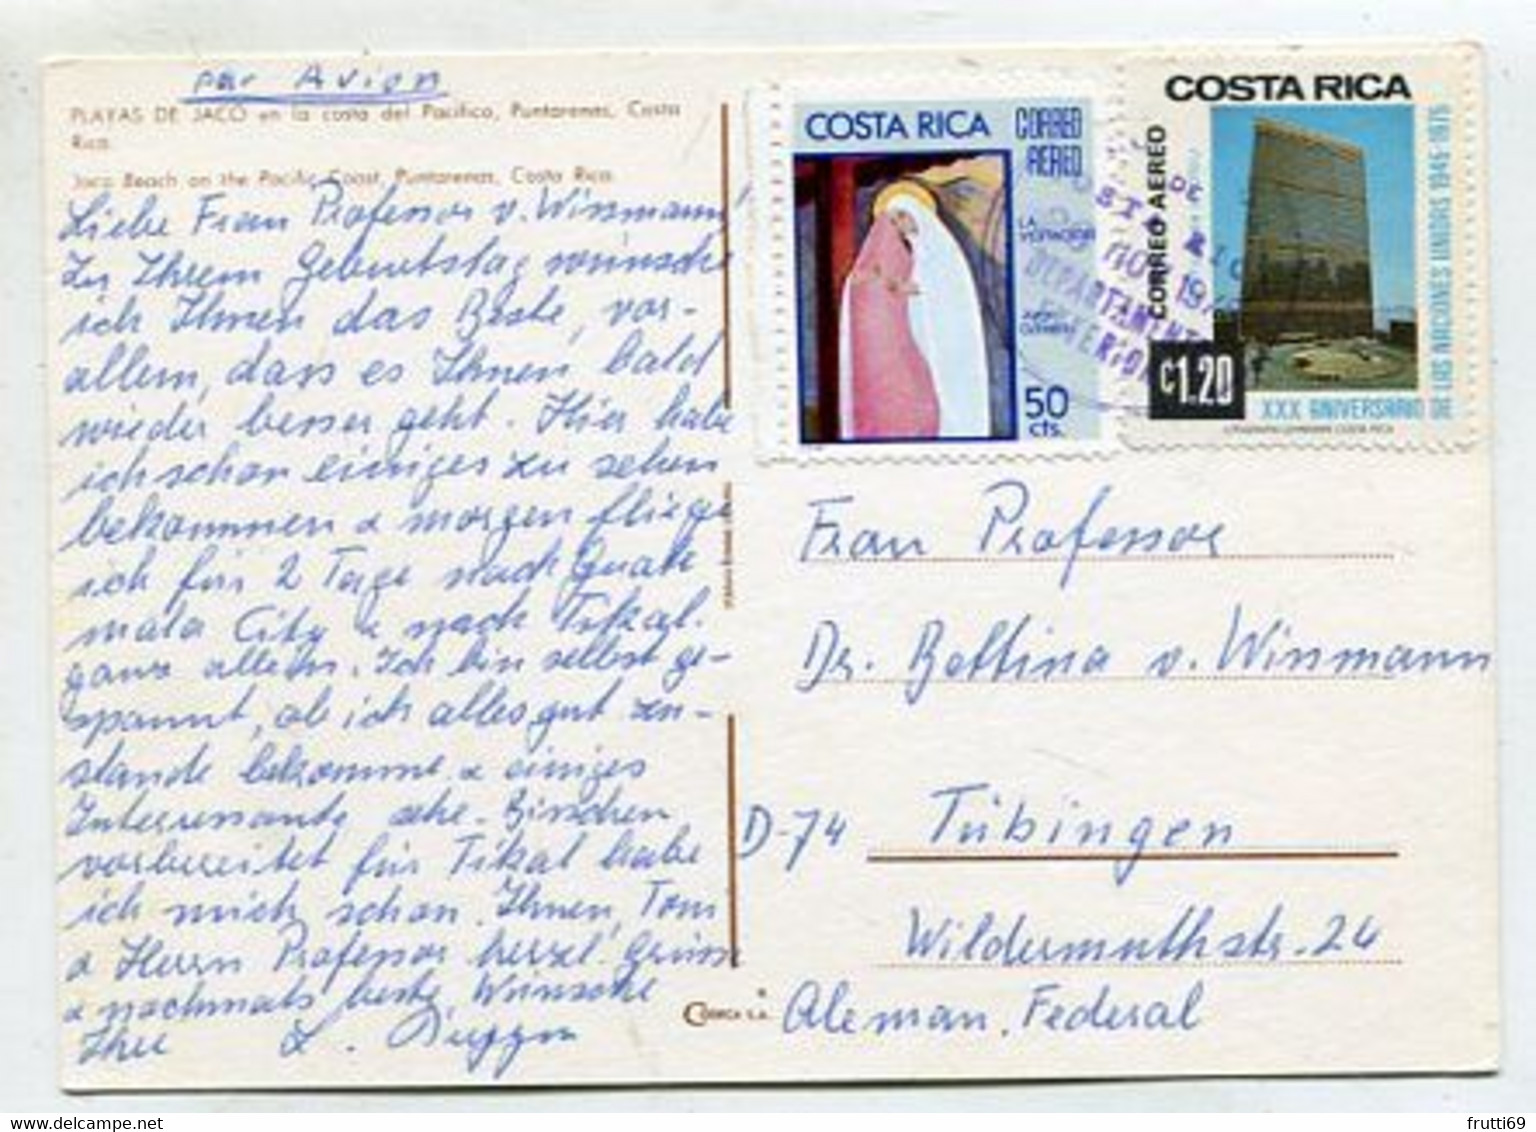 par Avion
PLAYAS DE JACO en la costa del Pacifico, Puntarenas, Costa
Rica.
Jaco Beach on the Pacific Coast, Puntarenas, Costa Rica.
Liebe Frau Professor v. Wissmann!
Zu Ihrem Geburtstag wünsche
ich Ihnen das Beste, vor-
allem, dass es Ihnen bald
wieder besser geht. Hier habe
ich schon einiges zu sehen
bekommen & morgen fliege
ich für 2 Tage nach Guate
mala City & nach Tikal.
ganz allein. Ich bin selbst ge-
spannt, ob ich alles gut zu-
stande bekomme & einiges
Interessante sehe. Bisschen
vorbereitet für Tikal habe
ich mich schon. Ihnen, Tom
& Herrn Professor herzl. Grüsse
& nachmals beste Wünsche
Ihre L.
COSTA RICA
CORREO
AEREO
LA
50
cts.
COSTA RICA
CORREO AEREO
₡1.20
XXX ANIVERSARIO DE LAS NACIONES UNIDAS 1945-1975
DE
DEPARTAMENTO
Frau Professor
Dr. Bettina v. Wissmann
D-74 Tübingen
Wildermuthstr. 24
Aleman. Federal
S.A.
frutti69